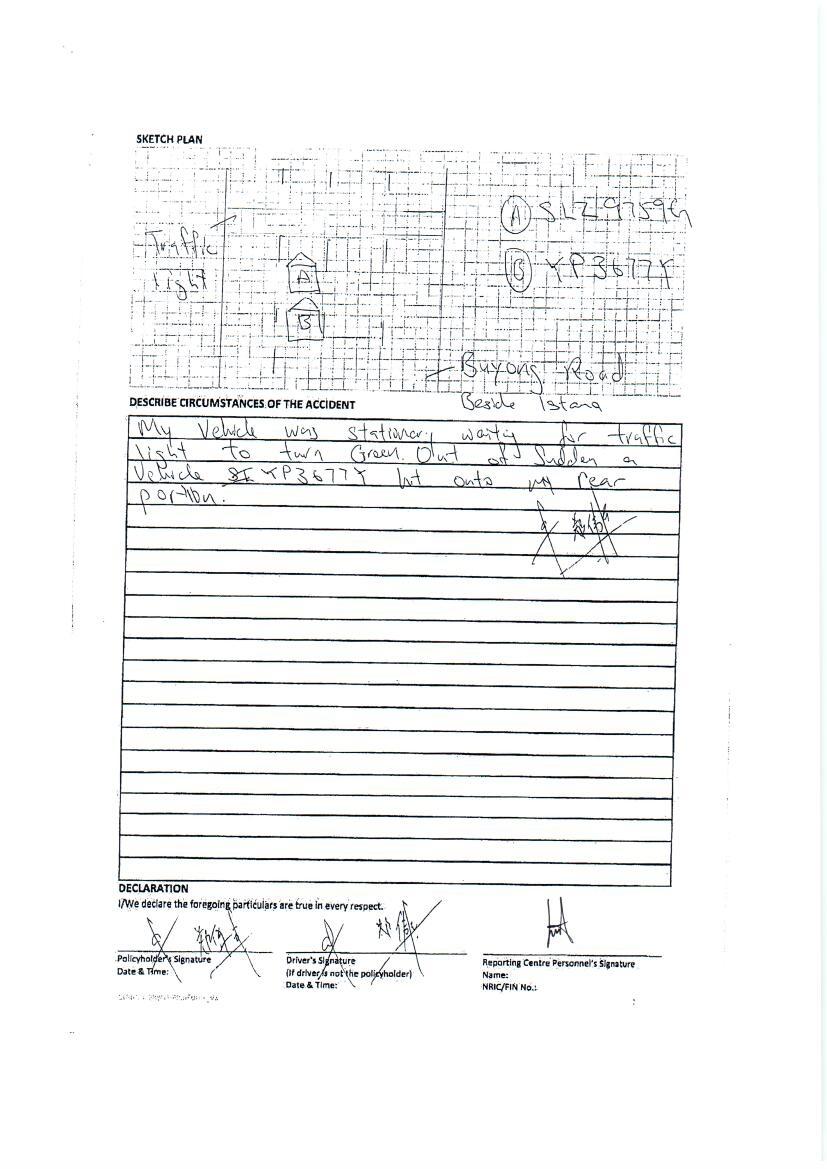 SKETCH PLAN
Traffic
Light
A SLZ9759G
B YP3677Y
A
B
Buyong Road
Beside Istana
DESCRIBE CIRCUMSTANCES OF THE ACCIDENT
My Vehicle was stationary waiting for traffic
light to turn Green. Out of Sudden a
Vehicle YP3677Y hit onto my rear
portion.
DECLARATION
I/We declare the foregoing particulars are true in every respect.
Policyholder's Signature
Date & Time:
Driver's Signature
(If driver is not the policyholder)
Date & Time:
Reporting Centre Personnel's Signature
Name:
NRIC/FIN No.: